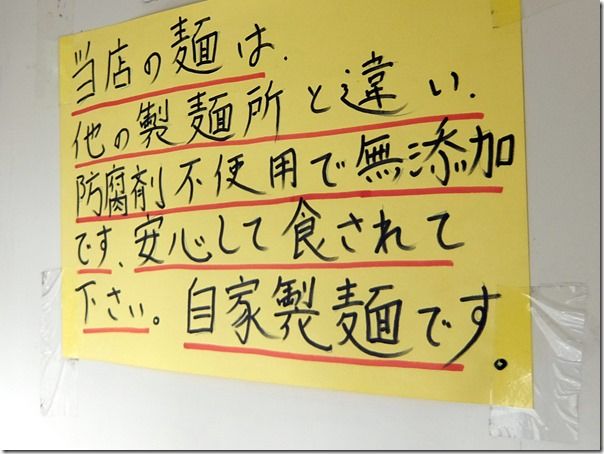 当店の麺は、
他の製麺所と違い、
防腐剤不使用で無添加
です、安心して食されて
下さい。自家製麺です。